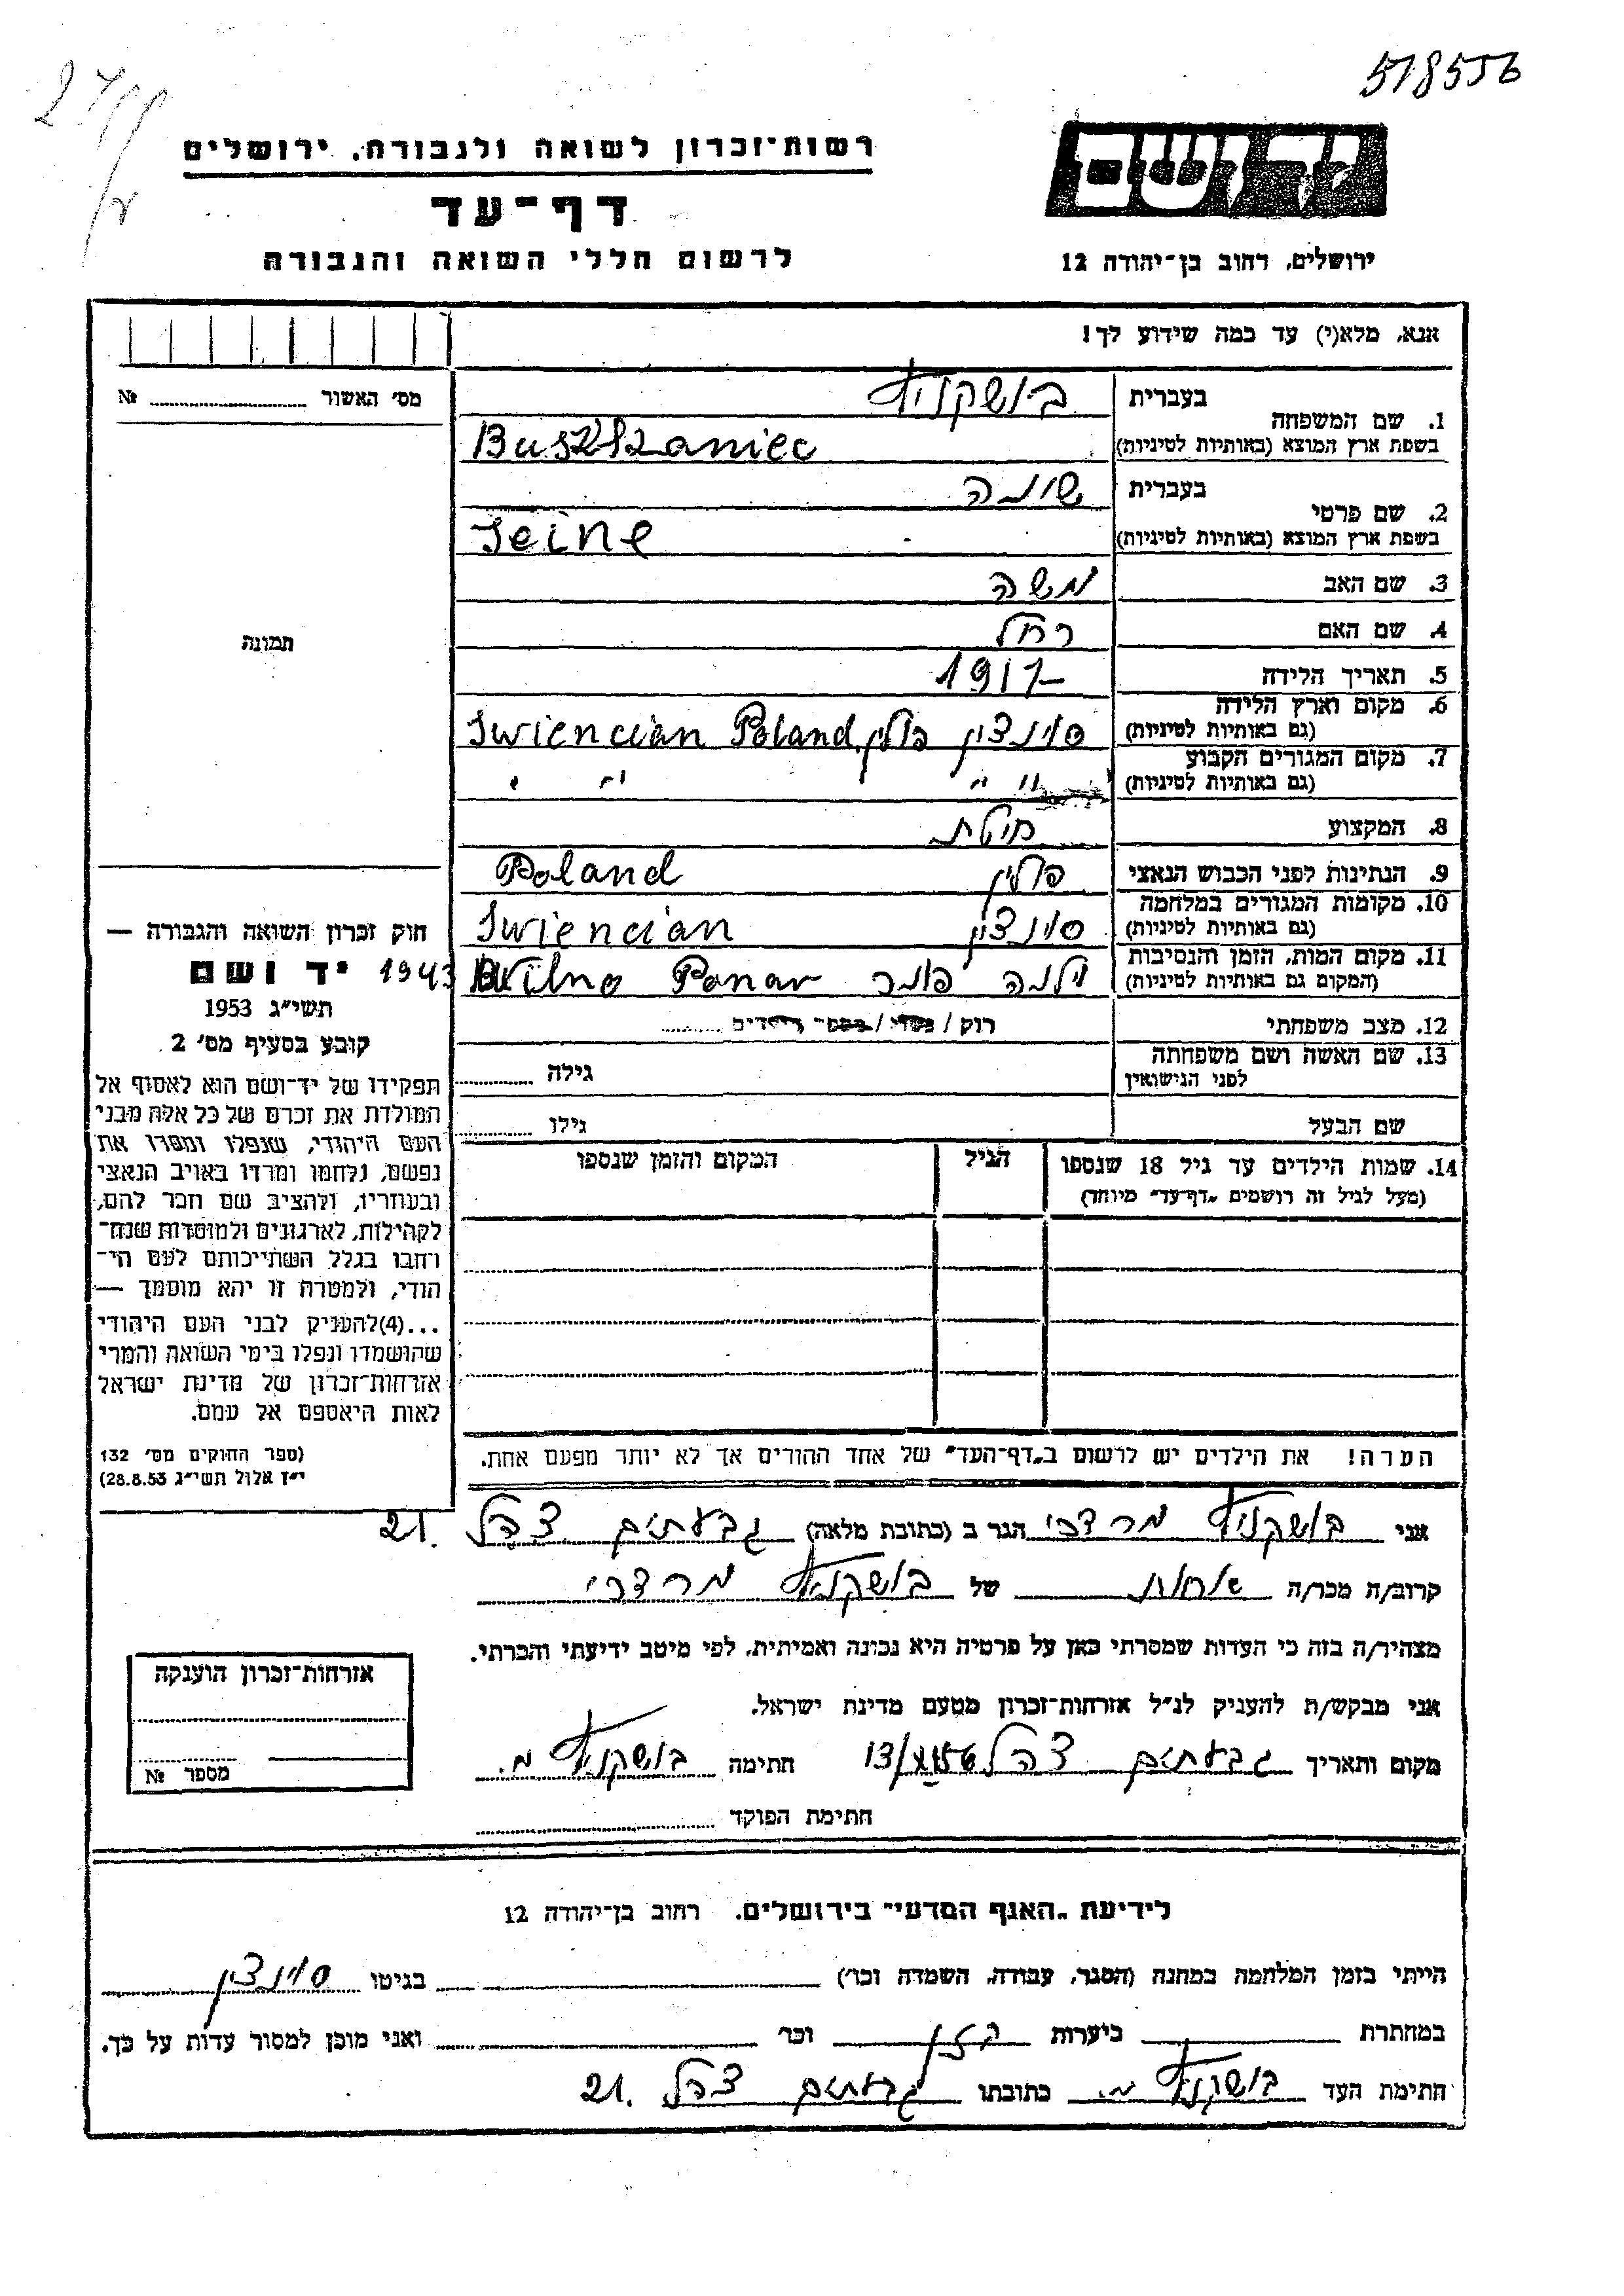 518556
יד ושם
רשות-זכרון לשואה ולגבורה, ירושלים
דף-עד
לרשום חללי השואה והגבורה
ירושלים, רחוב בן-יהודה 12
אנא, מלא(י) עד כמה שידוע לך!
מס׳ האשור № ........
1. שם המשפחה בעברית בושקניץ
בשפת ארץ המוצא (באותיות לטיניות) Buszkaniec
2. שם פרטי בעברית שיינה
בשפת ארץ המוצא (באותיות לטיניות) Seine
3. שם האב משה
4. שם האם רחל
תמונה
5. תאריך הלידה 1917
6. מקום וארץ הלידה (גם באותיות לטיניות) סווינצין פולין, Swiencian Poland
7. מקום המגורים הקבוע (גם באותיות לטיניות) " " " "
8. המקצוע
9. הנתינות לפני הכבוש הנאצי פולין Poland
10. מקומות המגורים במלחמה (גם באותיות לטיניות) סווינצין Swiencian
11. מקום המות, הזמן והנסיבות (המקום גם באותיות לטיניות) וילנה פונר Wilno Ponar 1943
12. מצב משפחתי רוק / נשוי / מספר הילדים ........
13. שם האשה ושם משפחתה לפני הנישואין גילה ........
שם הבעל גילו ........
14. שמות הילדים עד גיל 18 שנספו הגיל המקום והזמן שנספו
(מעל לגיל זה רושמים „דף-עד״ מיוחד)
חוק זכרון השואה והגבורה —
יד ושם
תשי״ג 1953
קובע בסעיף מס׳ 2
תפקידו של יד-ושם הוא לאסוף אל
המולדת את זכרם של כל אלה מבני
העם היהודי, שנפלו ומסרו את
נפשם, נלחמו ומרדו באויב הנאצי
ובעוזריו, ולהציב שם וזכר להם,
לקהילות, לארגונים ולמוסדות שנח-
רחבו בגלל השתייכותם לעם הי-
הודי, ולמטרה זו יהא מוסמך —
...(4)להעניק לבני העם היהודי
שהושמדו ונפלו בימי השואה והמרי
אזרחות-זכרון של מדינת ישראל
לאות היאספם אל עמם.
(ספר החוקים מס׳ 132
י״ז אלול תשי״ג 28.8.53)
הערה! את הילדים יש לרשום ב„דף-העד״ של אחד ההורים אך לא יותר מפעם אחת.
אני בושקניץ מרדכי הגר ב (כתובת מלאה) גבעתיים צהל 21.
קרוב/ה מכר/ה אחות של בושקניץ מרדכי
מצהיר/ה בזה כי העדות שמסרתי כאן על פרטיה היא נכונה ואמיתית, לפי מיטב ידיעתי והכרתי.
אני מבקש/ת להעניק לנ״ל אזרחות-זכרון מטעם מדינת ישראל.
מקום ותאריך גבעתיים צהל 13/ חתימה בושקניץ מ.
חתימת הפוקד
אזרחות-זכרון הוענקה
מספר №
לידיעת „האגף המדעי״ בירושלים. רחוב בן-יהודה 12
הייתי בזמן המלחמה במחנה (הסגר, עבודה, השמדה וכו׳) ........ בגיטו סווינצין
במחתרת ........ ביערות קזן וכו׳ ........ ואני מוכן למסור עדות על כך.
חתימת העד בושקניץ מ. כתובתו גבעתיים צהל 21.